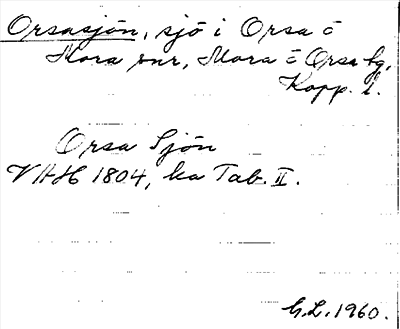 Orsasjön, sjö i Orsa o
Mora snr, Mora o Orsa tg,
Kopp. l.
Orsa Sjön
VHH 1804, ka Tab. II.
G.L. 1960.